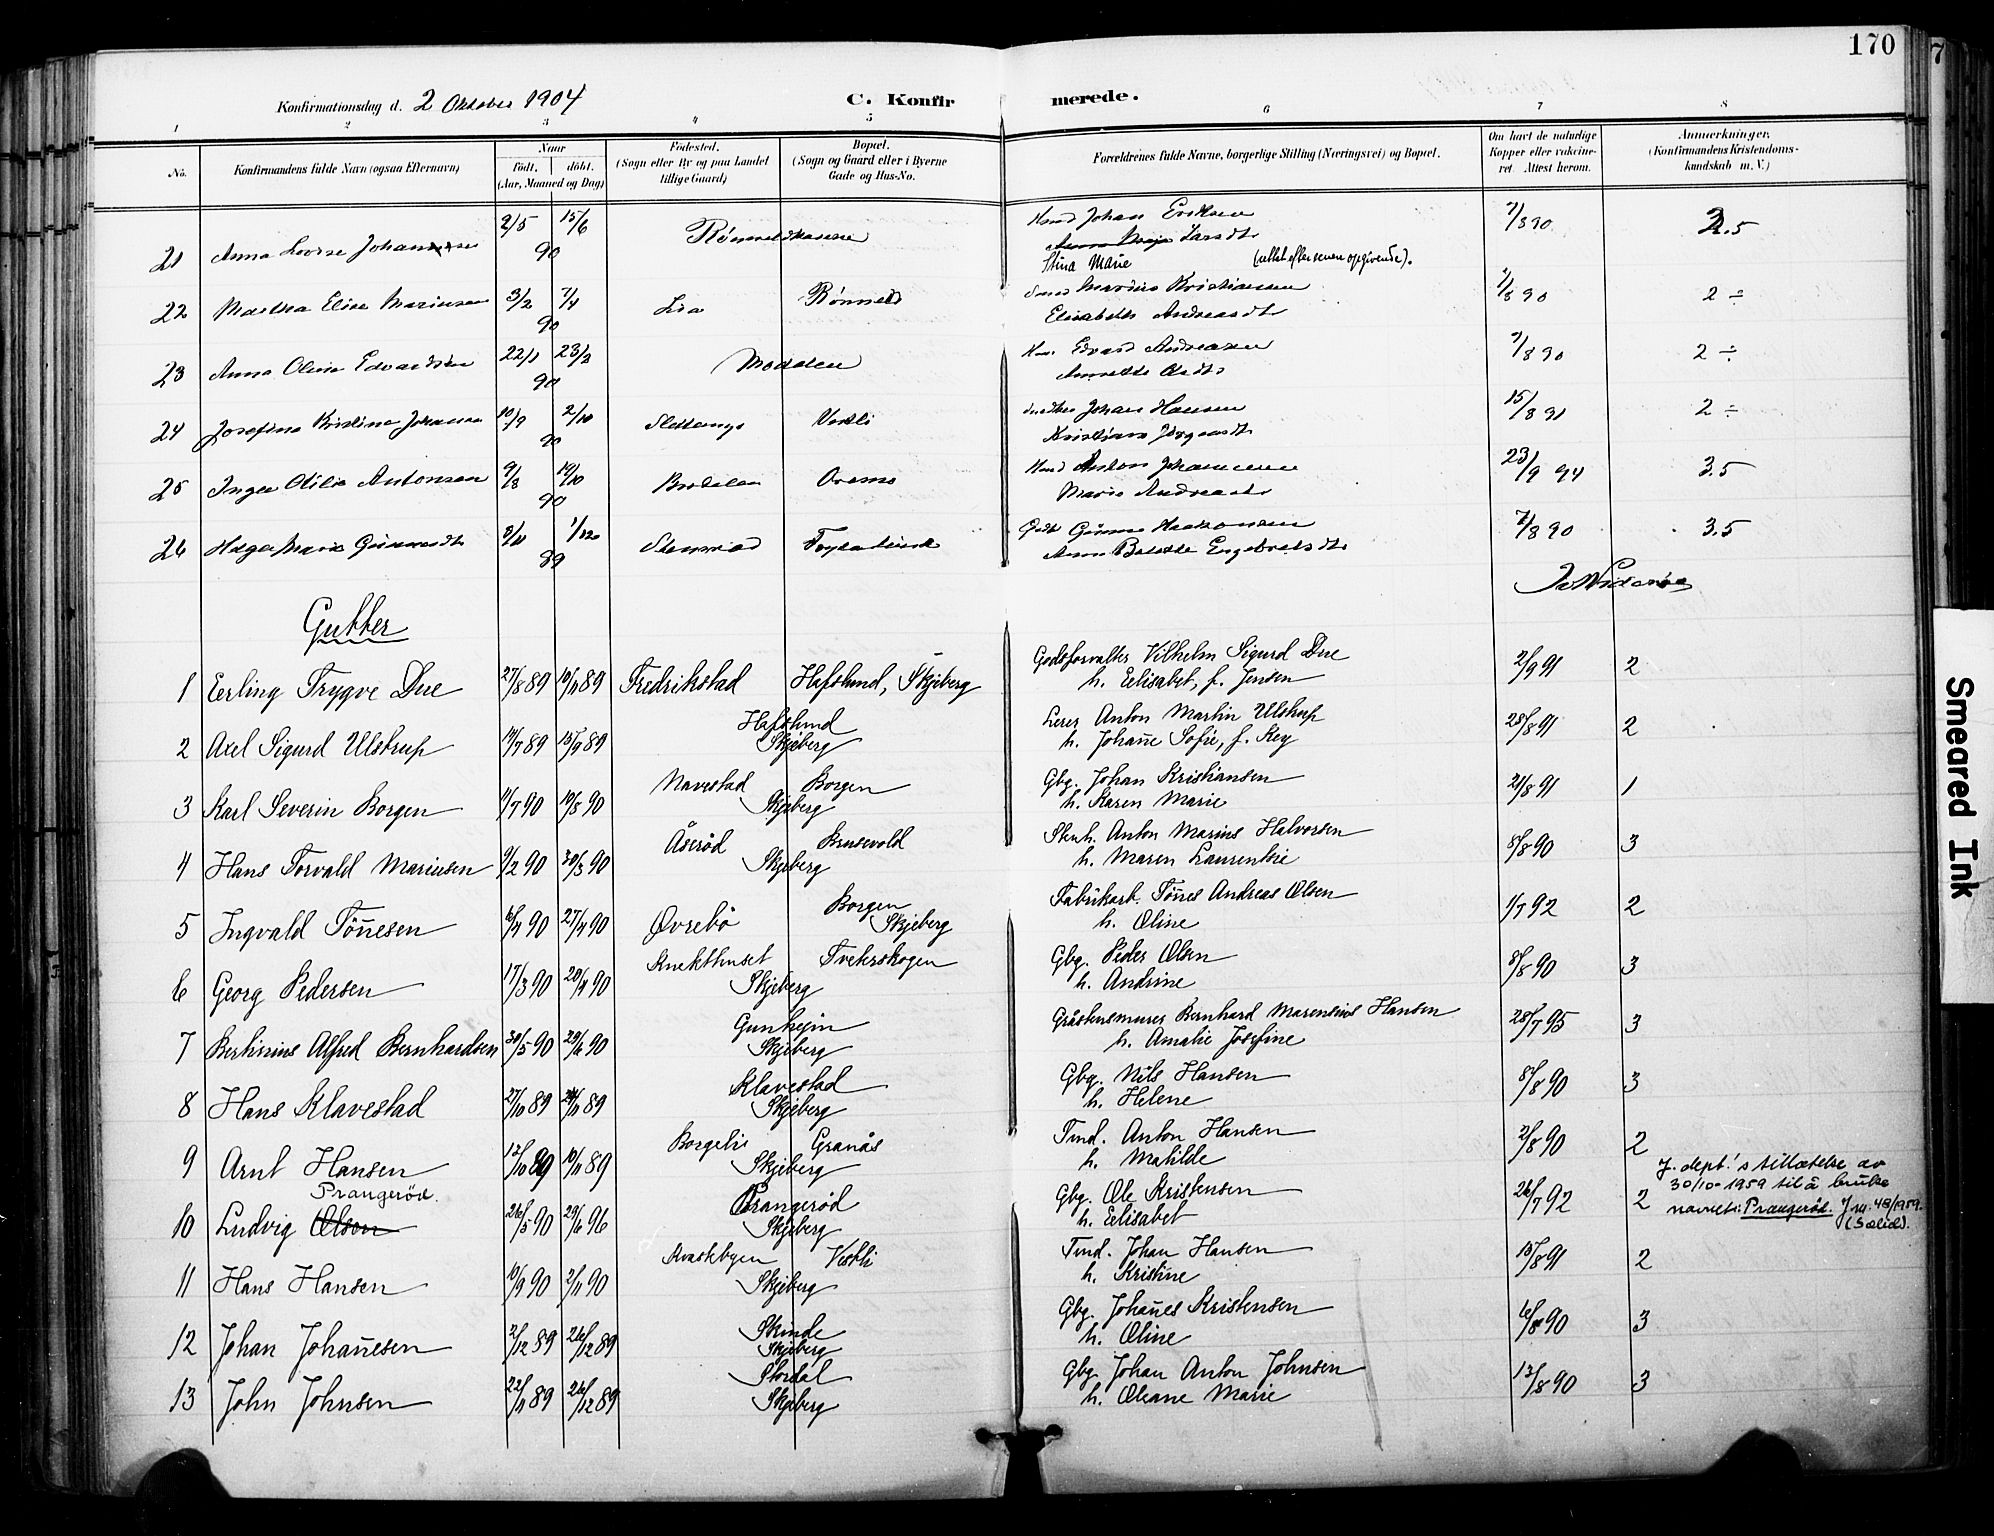 170
Konfirmationsdag d. 2 Oktober 1904
C. Konfirmerede.
1 2 3 4 5 6 7 8
No. Konfirmandens fulde Navn (ogsaa Efternavn) Naar Födt, döbt. (Aar, Maaned og Dag) Födested. (Sogn eller By og paa Landet tillige Gaard) Bopæl. (Sogn og Gaard eller i Byerne Gade og Hus-No. Forældrenes fulde Navne, borgerlige Stilling (Næringsvei) og Bopæl. Om havt de naturlige Kopper eller vaccineret. Attest herom. Anmerkninger. (Konfirmandens Kristendomskundskab m. V.)
21 Anna Lovise 2/5 15/6 90 Johan Eriksen 7/8 90 2.5
Larsdt
Stina Marie (rettet efter senere opgivende).
22 Martha Elise Mariusen 3/2 7/4 90 Lia Rönneld Marius Kristiansen 7/8 90 2 ÷
Elisabeth Andreasdt
23 Anna Oline Edvardsen 22/1 23/3 90 Modalen Edvard Andreasen 7/8 90 2 ÷
Annette Olsdt
24 Josefine Kristine Johansen 10/9 2/10 90 Slettangs Vestli Johan Hansen 15/8 91 2 ÷
Kristiane Jörgensdt
25 Inga Otilie Antonsen 9/8 19/10 90 Anton Johannesen 23/9 94 3.5
Marie Andreasdt
26 Helga Marie Gunnersdt 8/11 1/12 89 Stenrød Gunner Haakonsen 7/8 90 3.5
Anne Engebretsdt
Gutter
1 Eerling Trygve Due 27/8 89 10/11 89 Fredrikstad Hafslund, Skjeberg Godsforvalter Vilhelm Sigurd Due 2/9 91 2
h. Eelisabet, f. Jensen
2 Axel Sigurd Ulstrup 14/7 89 15/9 89 Hafslund Skjeberg Lerer Anton Martin Ulstrup 28/8 91 2
h. Johanne Sofie, f. Key
3 Karl Severin Borgen 11/7 90 10/8 90 Navestad Borgen Skjeberg Gbg. Johan Kristiansen 21/8 91 1
h. Karen Marie
4 Hans Torvald Mariusen 9/2 90 30/3 90 Åseröd Brusevold Skjeberg Stenh. Anton Marius Halvorsen 8/8 90 3
h. Maren Laurentsie
5 Ingvald Tönnesen 6/4 90 27/4 90 Øvrebö Borgen Skjeberg Fabrikarb. Tönnes Andreas Olsen 1/7 92 2
h. Oline
6 Georg Pedersen 17/3 90 20/4 90 Knekthuset Tveterskogen Skjeberg Gbg. Peder Olsen 8/8 90 3
h. Andrine
7 Bertinius Alfred Bernhardsen 30/5 90 29/6 90 Gunhejm Skjeberg Gråstensmurer Bernhard Marensius Hansen 28/7 95 3
h. Amalie Josefine
8 Hans Klavestad 27/10 89 24/11 89 Klavestad Skjeberg Gbg. Nils Hansen 8/8 90 3
h. Helene
9 Arnt Hansen 12/10 89 10/11 89 Borgelie Granås Skjeberg Tmd. Anton Hansen 2/8 90 2
h. Matilde
J. dept.'s tillatelse av
30/10-1959 til å bruke
navnet: Prangeröd. J.nr. 48/1959.
Prangeröd.
10 Ludvig Olsen 26/5 90 29/6 96 Prangeröd Skjeberg Gbg. Ole Kristensen 26/7 92 2
h. Eelisabet
11 Hans Hansen 10/9 90 2/11 90 Kvastebyen Vestli Skjeberg Tmd. Johan Hansen 15/8 91 2
h. Kristine
12 Johan Johannesen 2/12 89 26/12 89 Skinde Skjeberg Gbg. Johannes Kristensen 6/8 90 3
h. Oline
13 John Johnsen 22/11 89 26/12 89 Stordal Skjeberg Gbg Johan Anton Johnsen 13/8 90 3
h. Oleane Marie
Smeared Ink